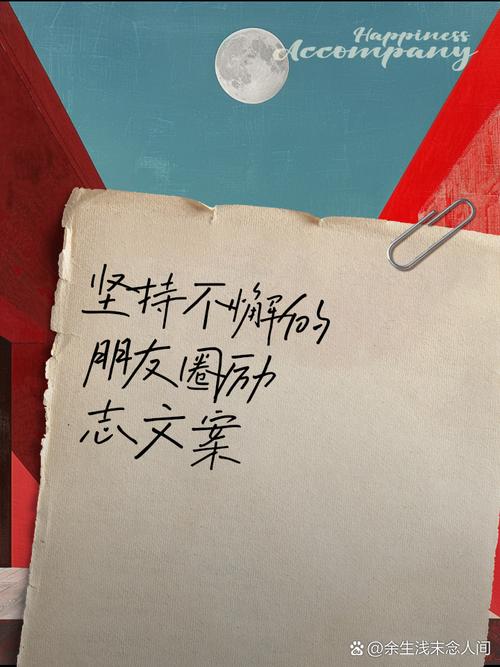 Happiness
Accompany
坚持不懈的
朋友圈励
志文案
余生浅末念人间